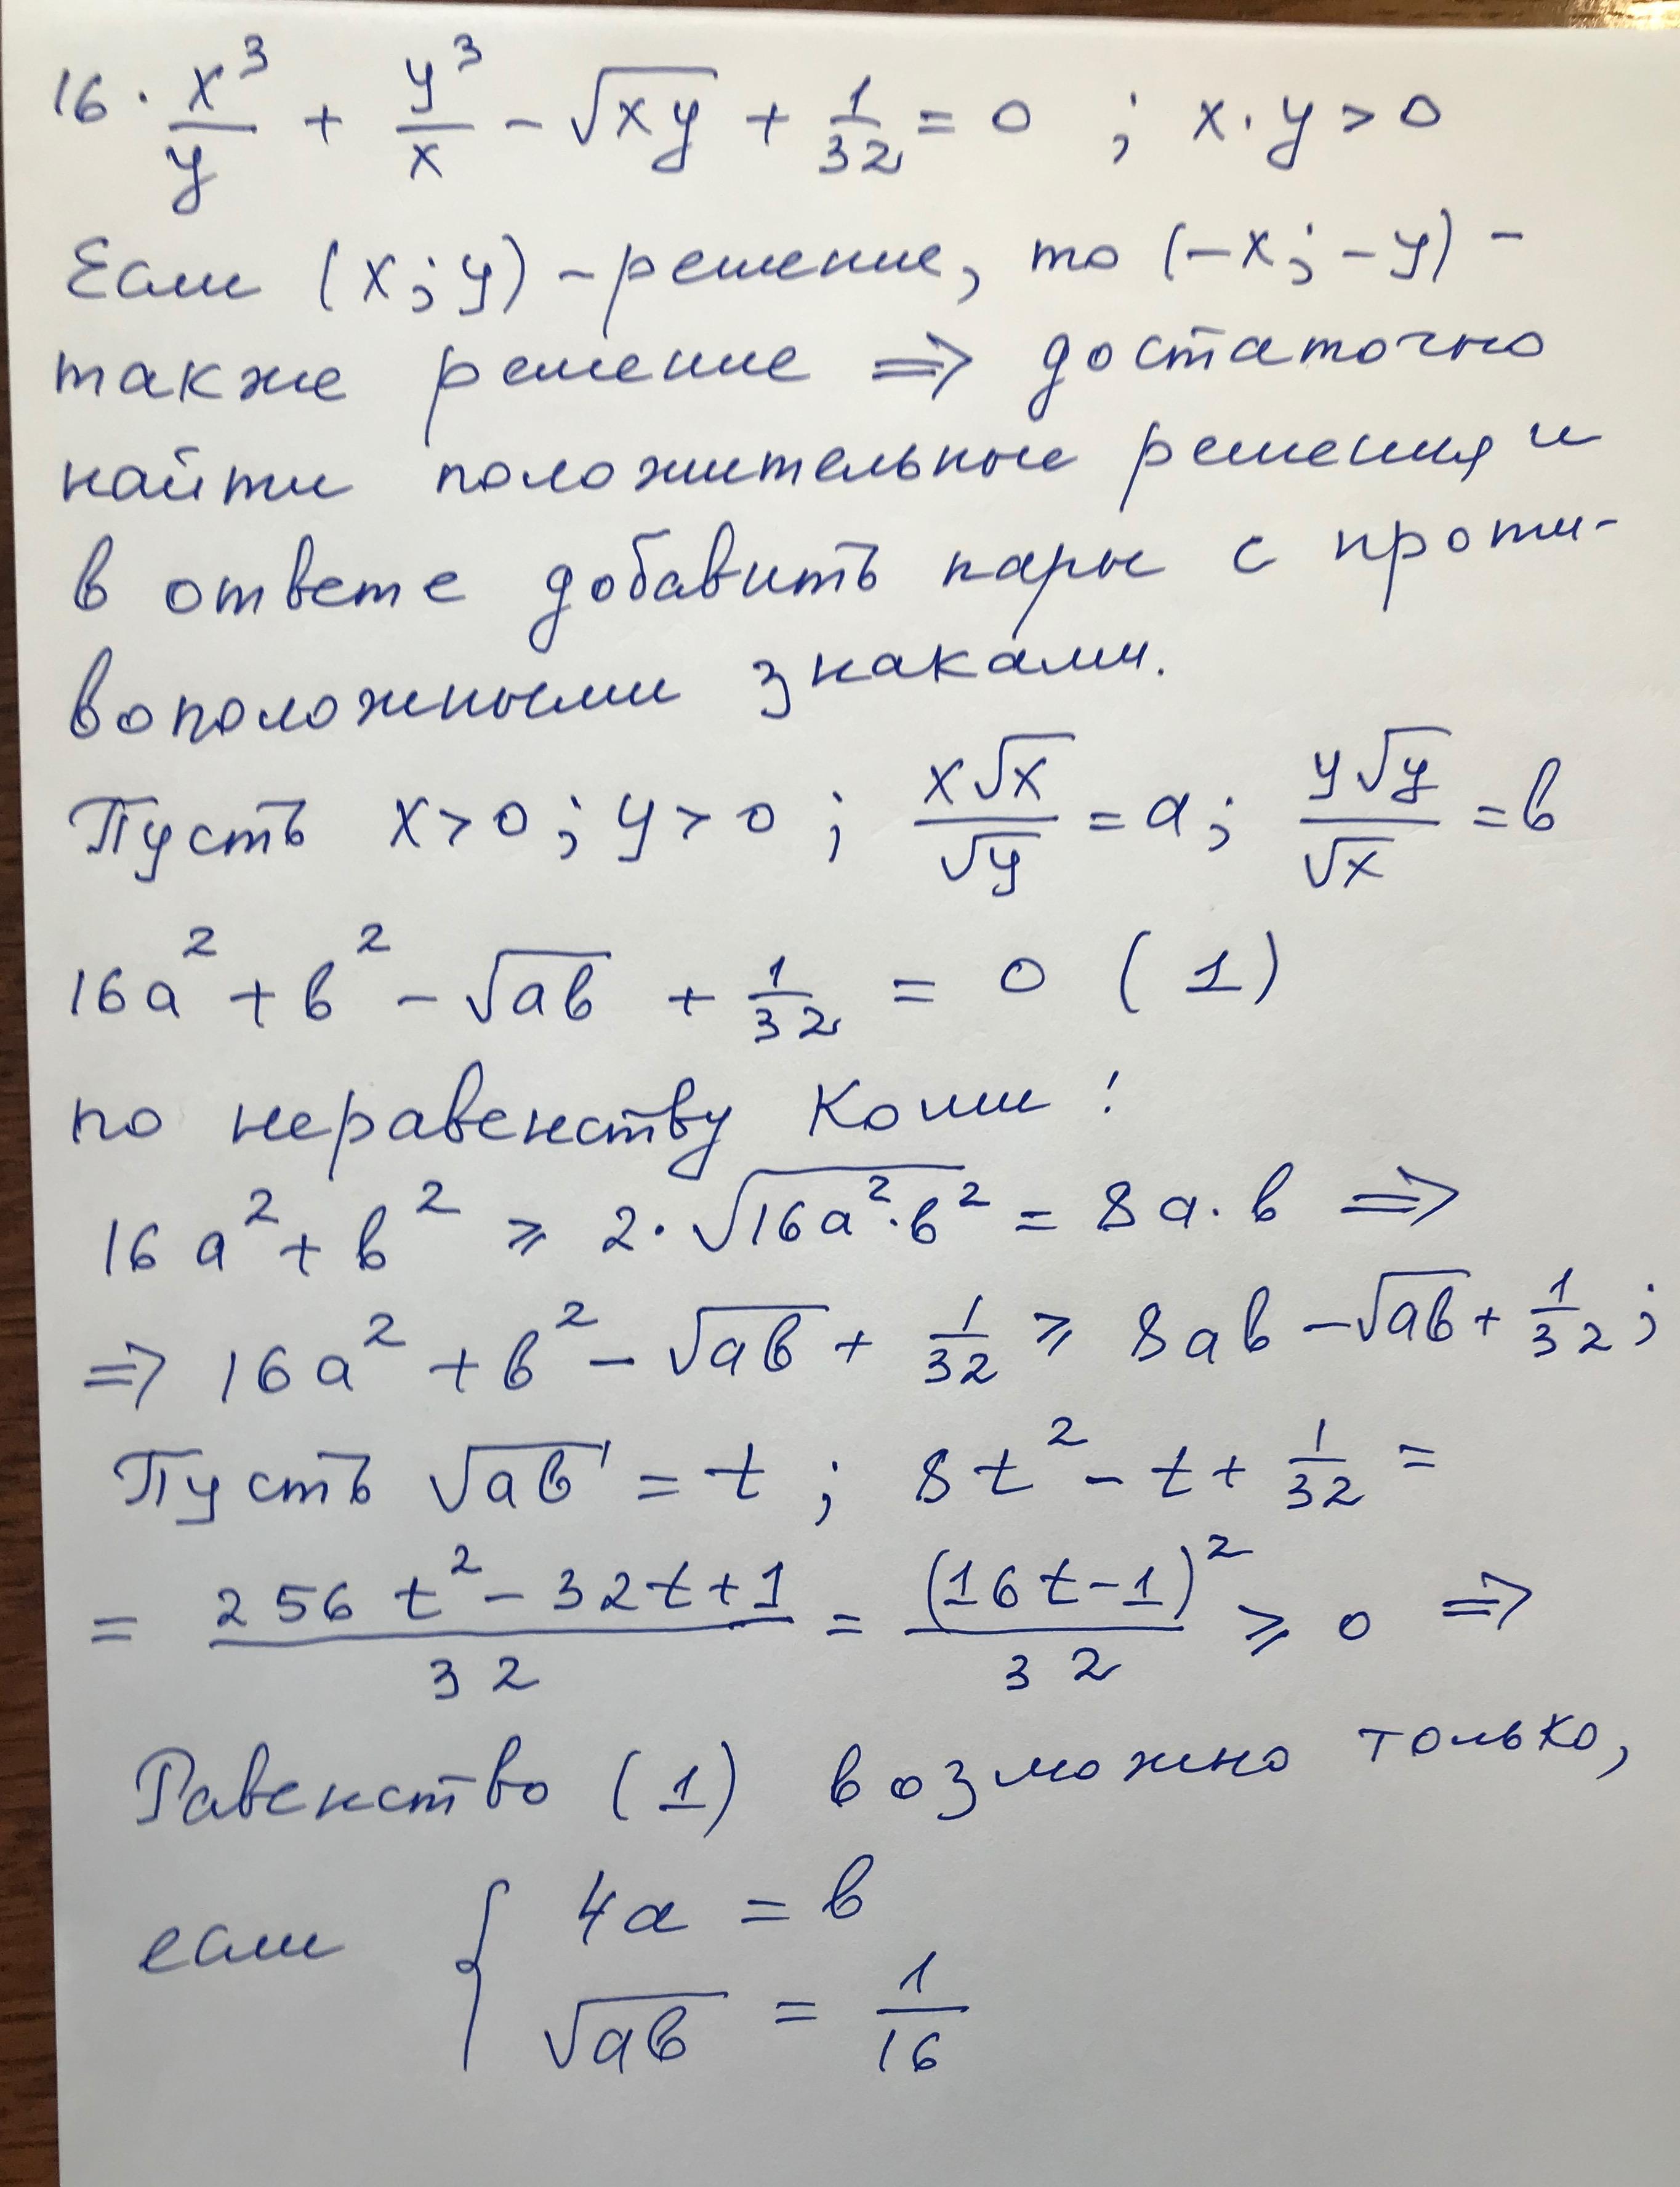 16 · x³/y + y³/x − √xy + 1/32 = 0 ; x·y > 0
Если (x; y) – решение, то (−x; −y) –
также решение ⇒ достаточно
найти положительные решения и
в ответе добавить пары с проти-
воположными знаками.
Пусть x > 0; y > 0 ; x√x/√y = a; y√y/√x = b
16a² + b² − √ab + 1/32 = 0 (1)
по неравенству Коши:
16a² + b² ⩾ 2·√16a²·b² = 8a·b ⇒
⇒ 16a² + b² − √ab + 1/32 ⩾ 8ab − √ab + 1/32;
Пусть √ab = t ; 8t² − t + 1/32 =
= 256t² − 32t + 1/32 = (16t−1)²/32 ⩾ 0 ⇒
Равенство (1) возможно только,
если { 4a = b
√ab = 1/16